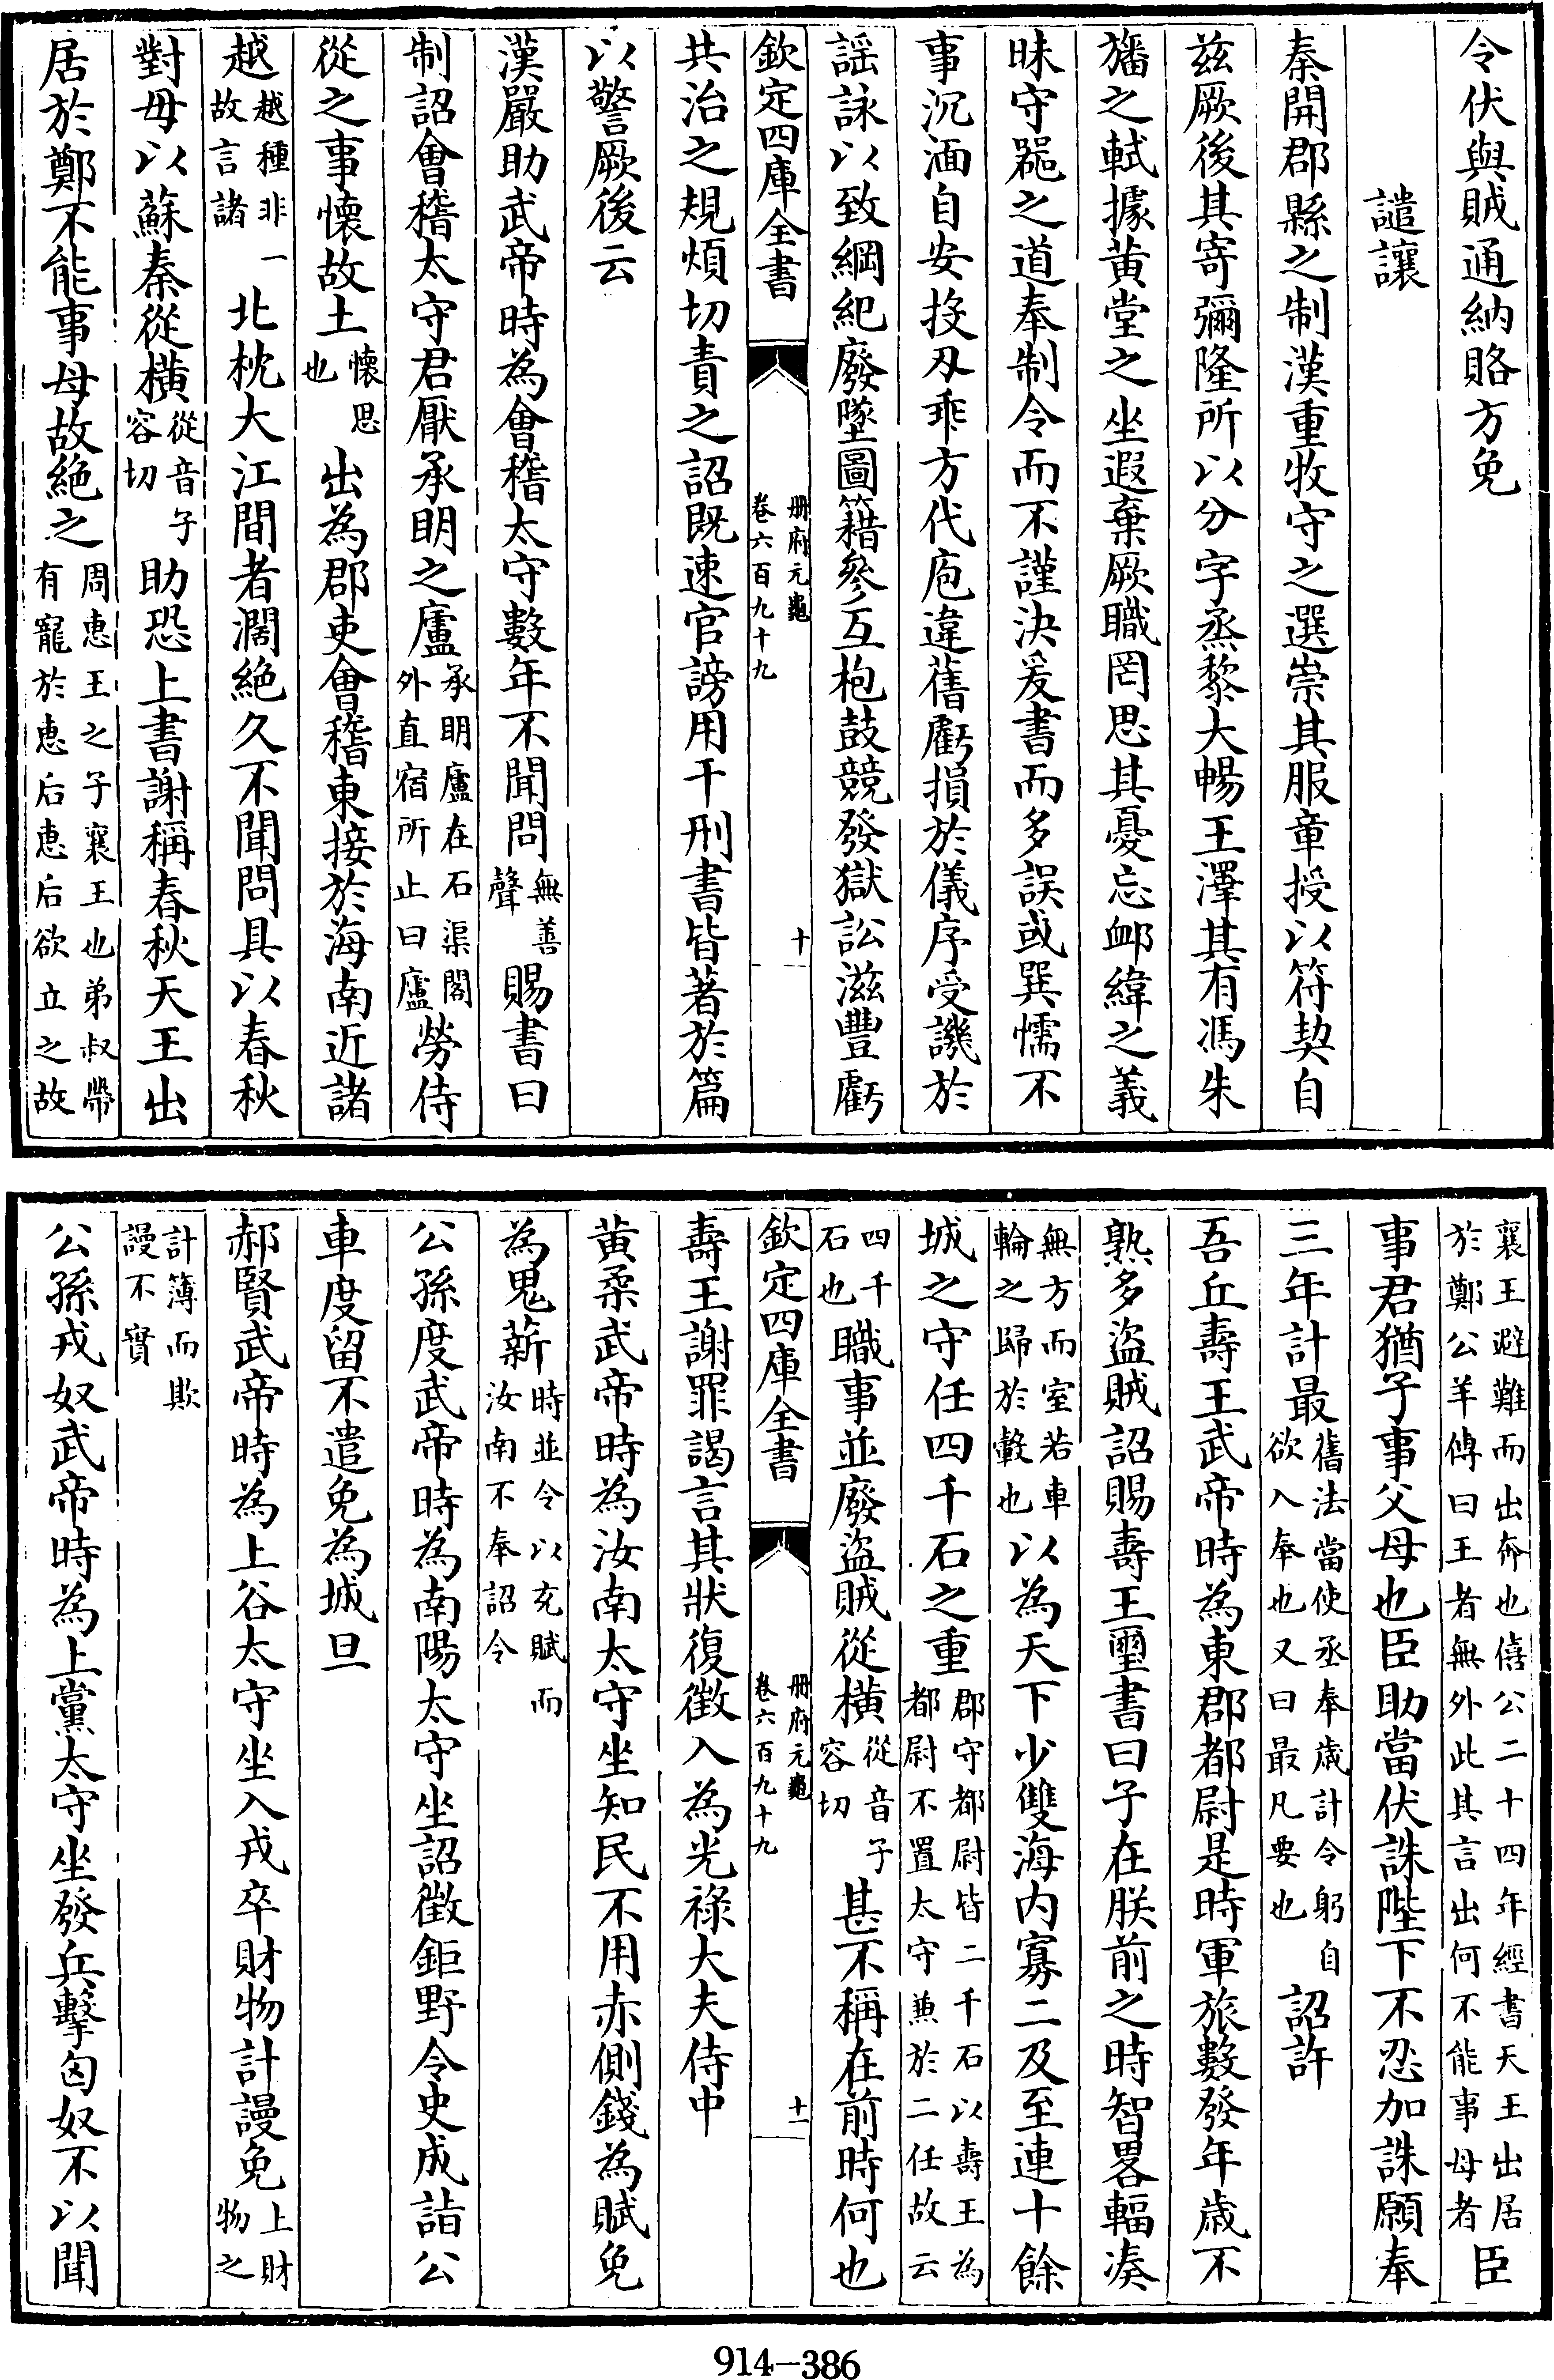 令伏與賊通納賂方免
譴讓
秦開郡縣之制漢重牧守之選崇其服章授以符契自
兹厥後其寄彌隆所以分字烝黎大暢王澤其有馮朱
旛之軾據黄堂之坐遐棄厥職罔思其憂忘衈緯之義
昧守噐之道奉制令而不謹決爰書而多誤或巽懦不
事沉湎自安投刃乖方代庖違舊虧損於儀序受譏於
謡詠以致綱紀廢墜圖籍參互枹鼓競發獄訟滋豐虧
欽定四庫全書
册府元龜
卷六百九十九
十
共治之規煩切責之詔既速官謗用干刑書皆著於篇
以警厥後云
漢嚴助武帝時為會稽太守數年不聞問無善聲賜書曰
制詔會稽太守君厭承明之廬承明廬在石渠閣外直宿所止曰廬勞侍
從之事懷故土懷思也出為郡吏會稽東接於海南近諸
越越種非一故言諸北枕大江間者濶絶久不聞問具以春秋
對毋以蘇秦從横從音子容切助恐上書謝稱春秋天王出
居於鄭不能事母故絶之周惠王之子襄王也弟叔帶有寵於惠后惠后欲立之故
襄王避難而出奔也僖公二十四年經書天王出居於鄭公羊傳曰王者無外此其言出何不能事母者臣
事君猶子事父母也臣助當伏誅陛下不忍加誅願奉
三年計最舊法當使丞奉歳計令躬自欲入奉也又曰最凡要也詔許
吾丘壽王武帝時為東郡都尉是時軍旅數發年歳不
熟多盜賊詔賜壽王璽書曰子在朕前之時智畧輻湊
無方而室若車輪之歸於轂也以為天下少雙海内寡二及至連十餘
城之守任四千石之重郡守都尉皆二千石以壽王為都尉不置太守兼於二任故云
四千石也職事並廢盜賊從横從音子容切甚不稱在前時何也
欽定四庫全書
册府元龜
卷六百九十九
十一
壽王謝罪謁言其狀復徴入為光祿大夫侍中
黄柔武帝時為汝南太守坐知民不用赤側錢為賦免
為鬼薪時並令以充賦而汝南不奉詔令
公孫度武帝時為南陽太守坐詔徴鉅野令史成詣公
車度留不遣免為城旦
郝賢武帝時為上谷太守坐入戎卒財物計謾免上財物之
計簿而欺謾不實
公孫戎奴武帝時為上黨太守坐發兵擊匈奴不以聞
914-386